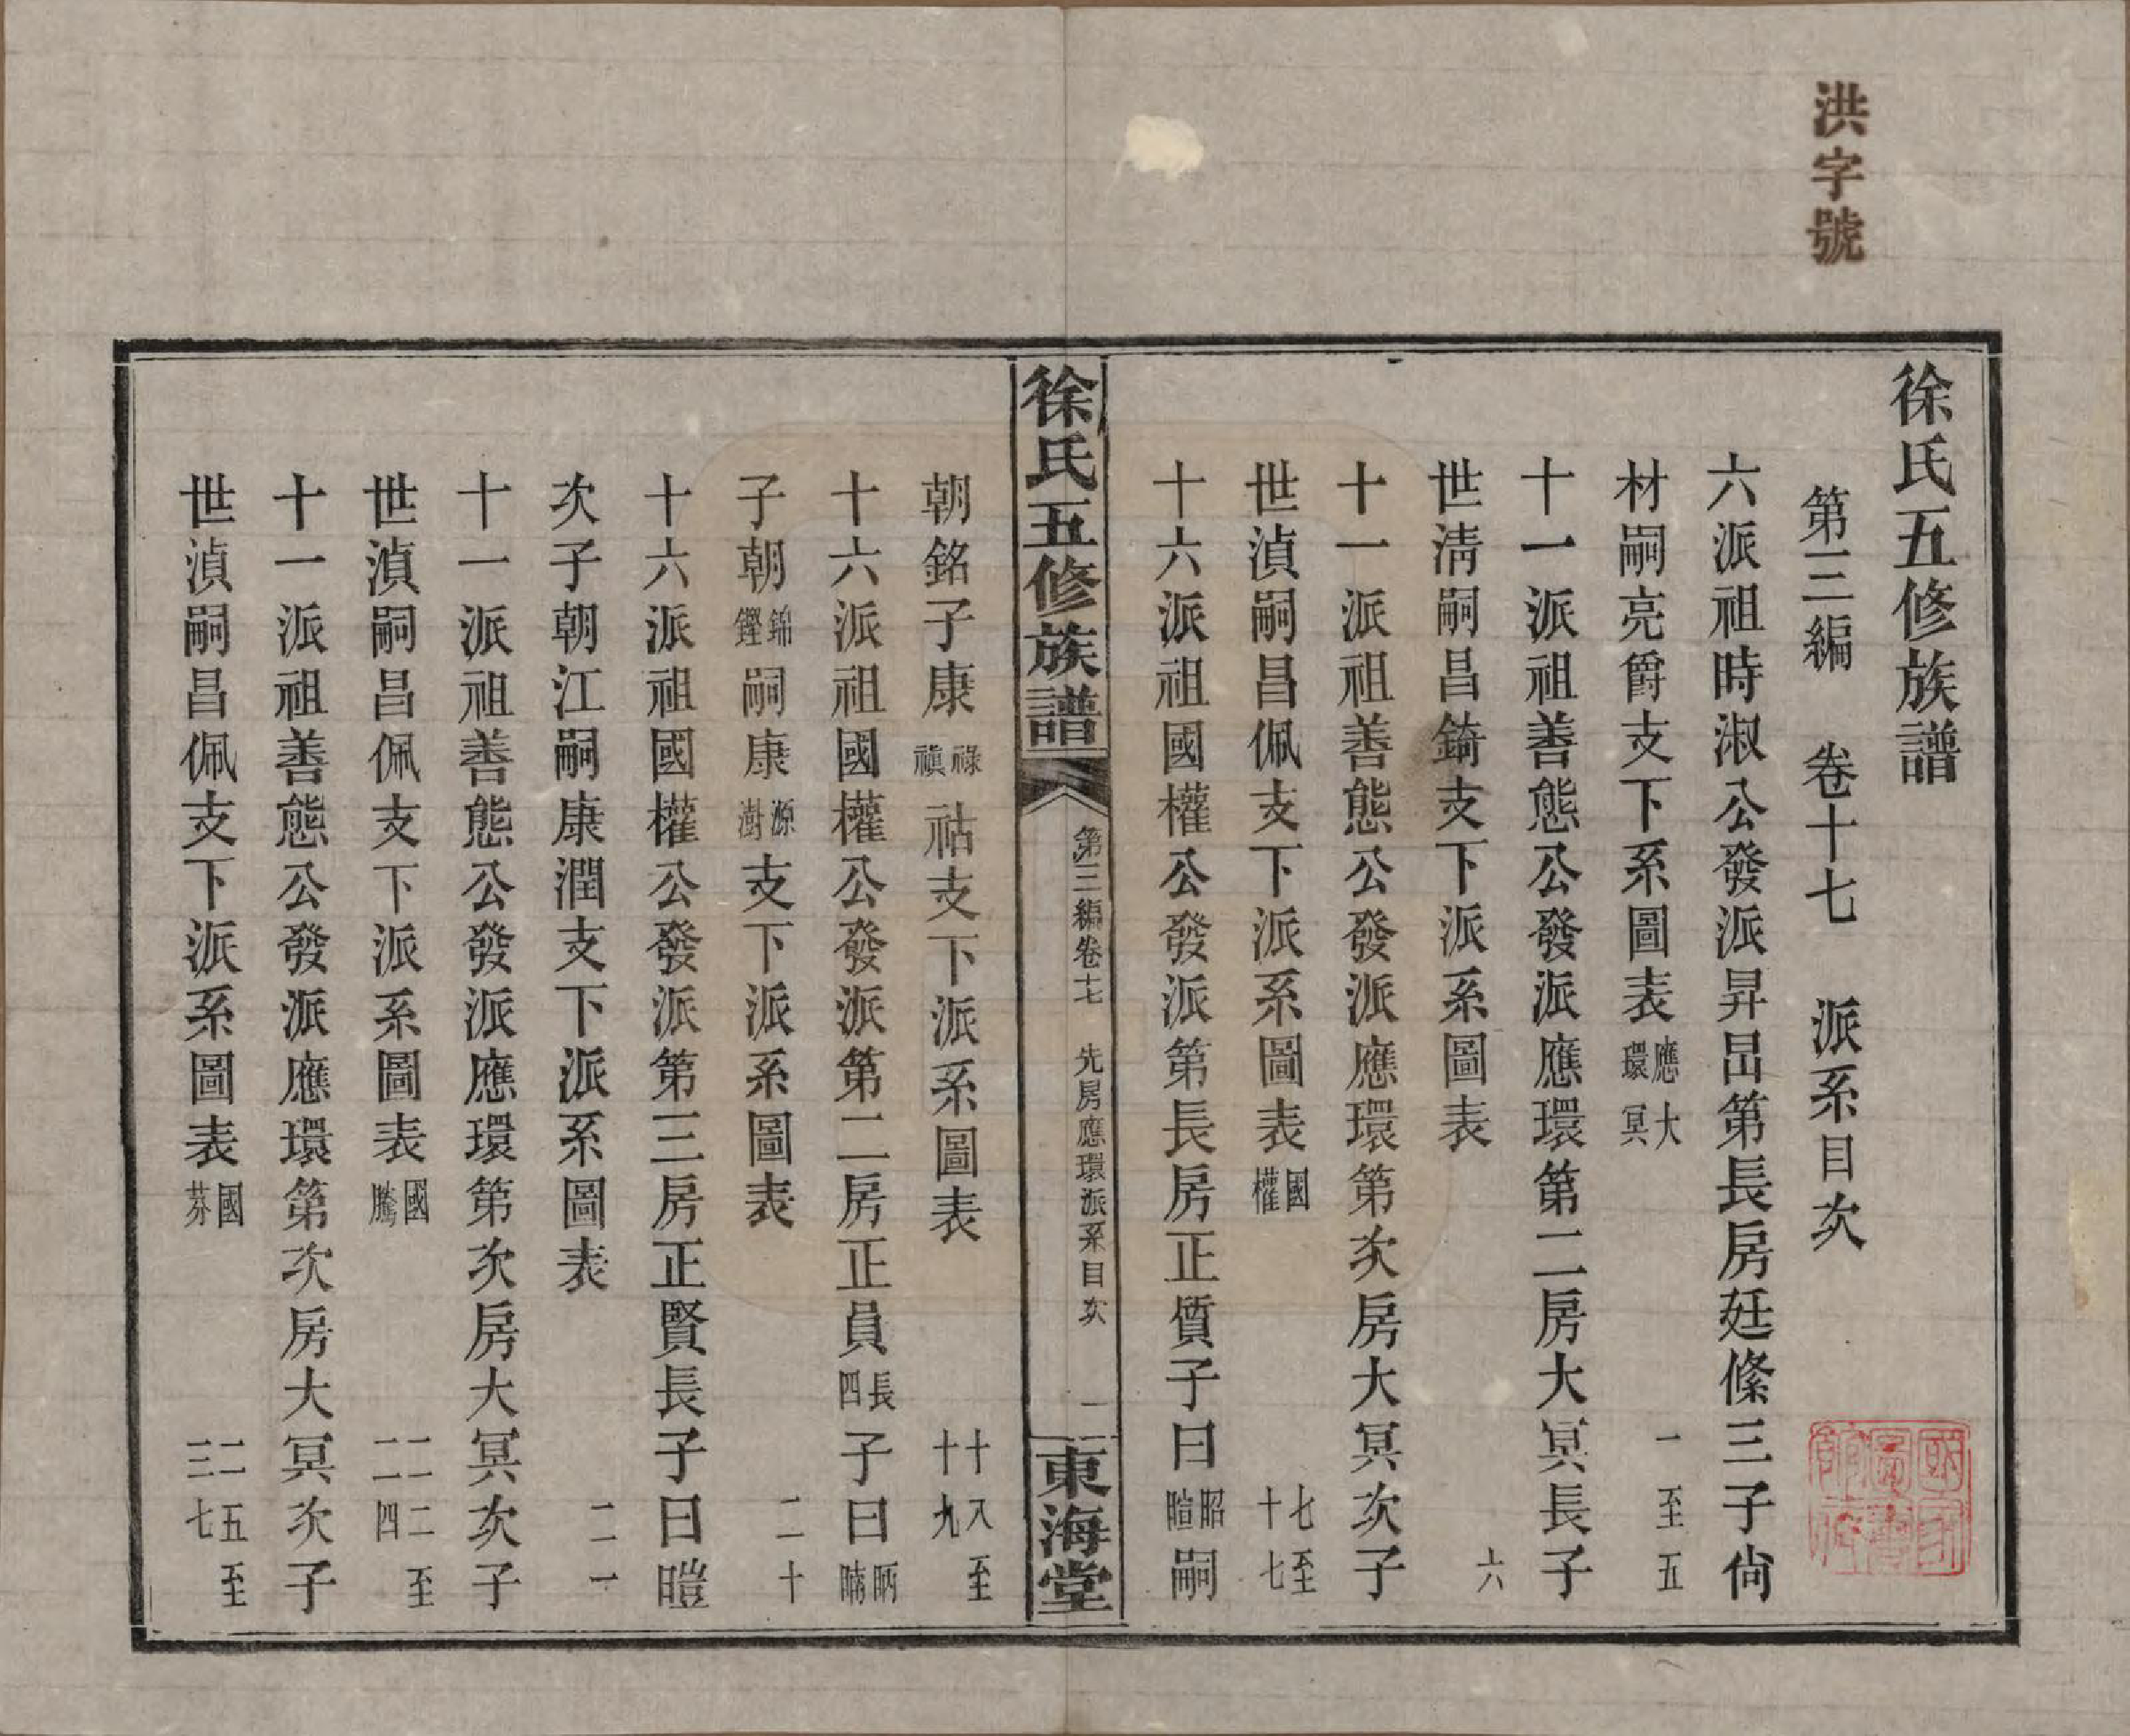 洪字號
徐氏五修族譜
第三編 卷十七 派系目次
六派祖時淑公發派昇嵒第長房廷絛三子尙
材嗣亮爵支下系圖表 應環 大冥 一至五
十一派祖善態公發派應環第二房大冥長子
世淸嗣昌錡支下派系圖表 六
十一派祖善態公發派應環第次房大冥次子
世湞嗣昌佩支下派系圖表 國權 七至十七
十六派祖國權公發派第長房正質子曰昭暄嗣
徐氏五修族譜 第三編卷十七 先房應環派系目次 一 東海堂
朝銘子康祿禛祜支下派系圖表 十八至十九
十六派祖國權公發派第二房正員長四子曰昞暔
子朝錦鏗嗣康源澍支下派系圖表 二十
十六派祖國權公發派第三房正賢長子曰暟
次子朝江嗣康潤支下派系圖表 二一
十一派祖善態公發派應環第次房大冥次子
世湞嗣昌佩支下派系圖表 國騰 二二至二四
十一派祖善態公發派應環第次房大冥次子
世湞嗣昌佩支下派系圖表 國芬 二五至三七